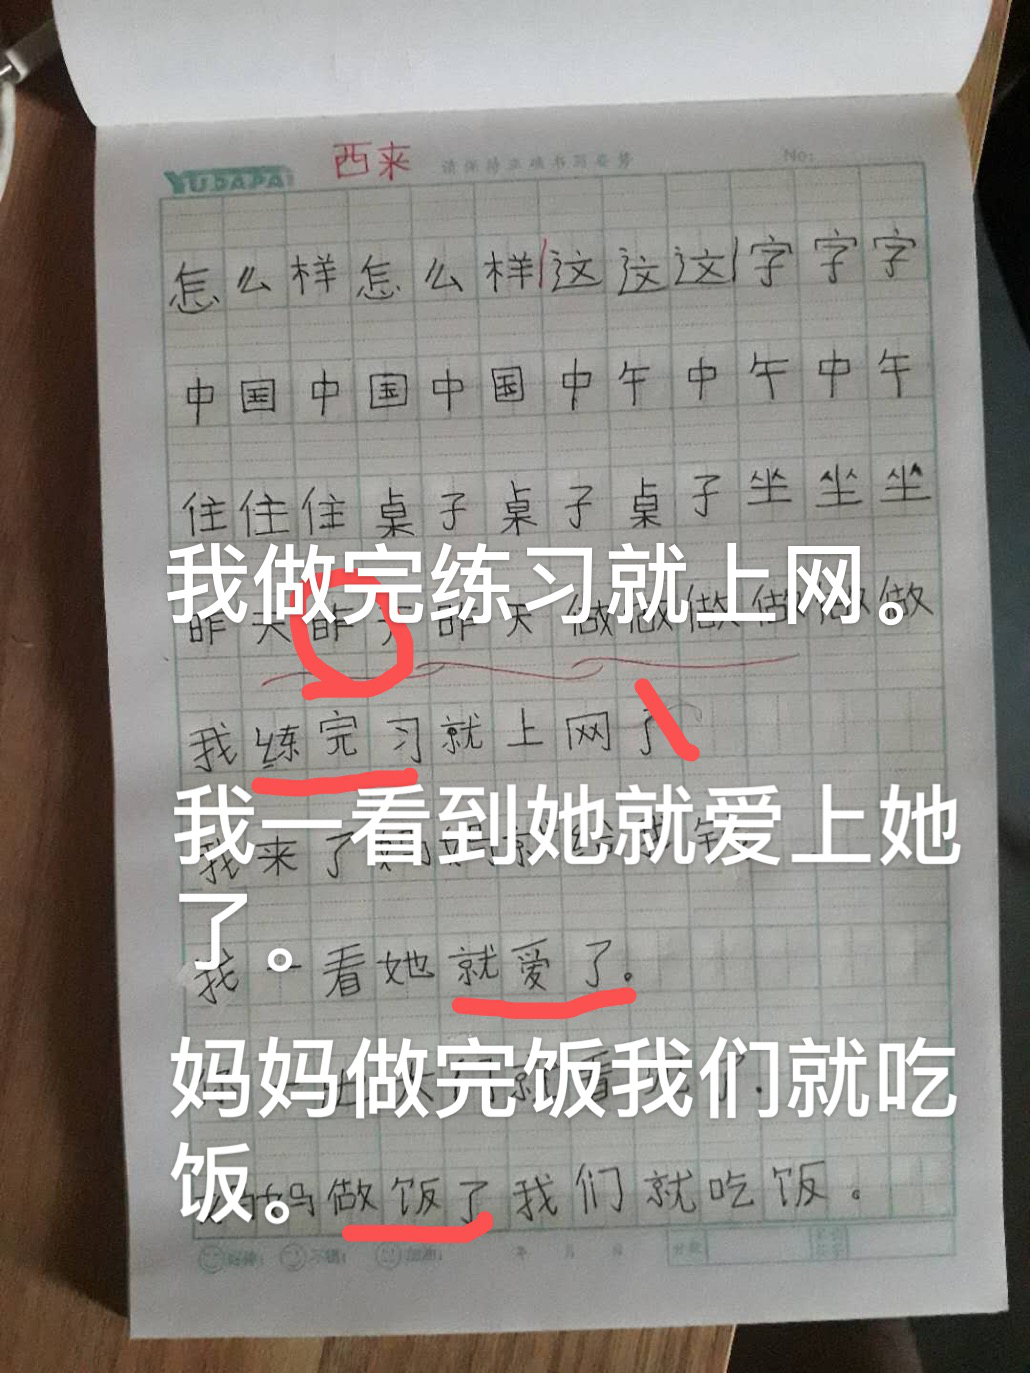 YUDAPAI 西来 请保持正确书写姿势 No:
怎么样怎么样这这这字字字
中国中国中国中午中午中午
住住住桌子桌子桌子坐坐坐
我做完练习就上网。
昨天昨天昨天做做做做做做
我练完习就上网了
我一看到她就爱上她
了。
我来了
我一看她就爱了。
妈妈做完饭我们就吃
饭。
就看 了.
妈做饭了我们就吃饭。
好棒: 不错: 加油: 年 月 日